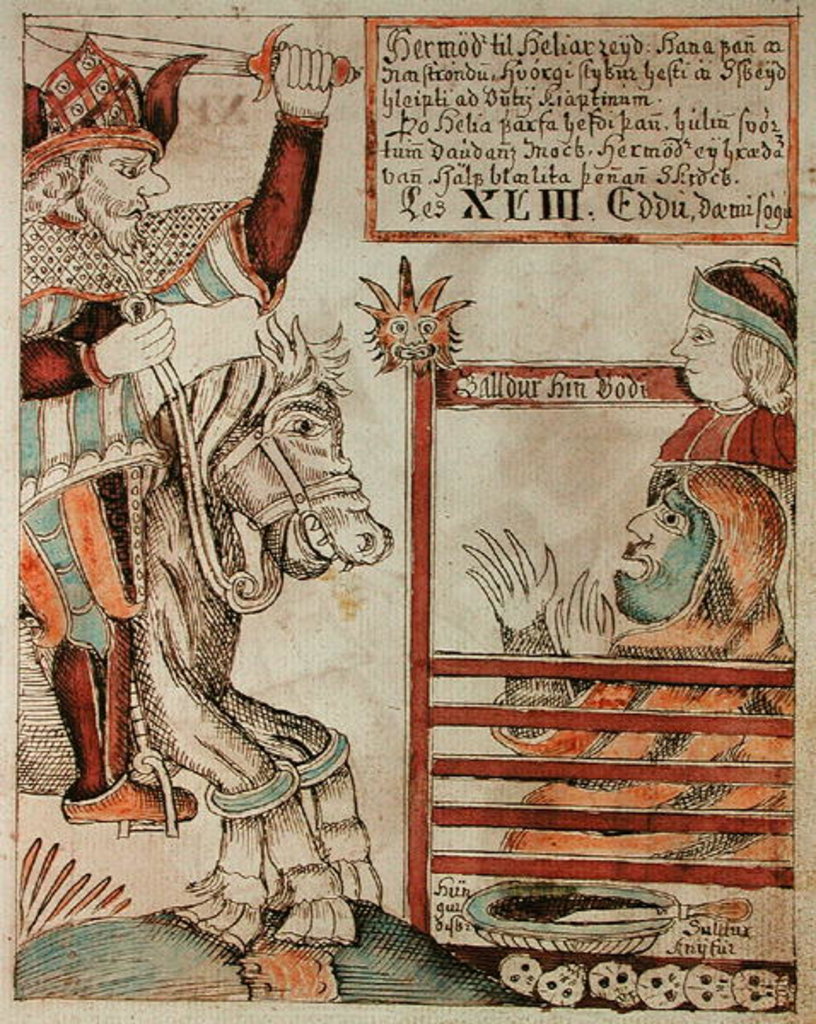 Hermöd til Heliar reyd: Hana þañ a
Naströndu, Hvörgi stydur hesti a Skeyd
hleipti ad kiaptinum.
Þo Helia þarfa hefdi þañ, huliñ svör-
tum daudans Mock, Hermöd ey hræda
vañ, Hálf blælita þeñañ Skrock.
Les XLIII. Eddu, dæmisögu
Balldur hin Godi
Hun
gur
disk
Sulltur
knyfur